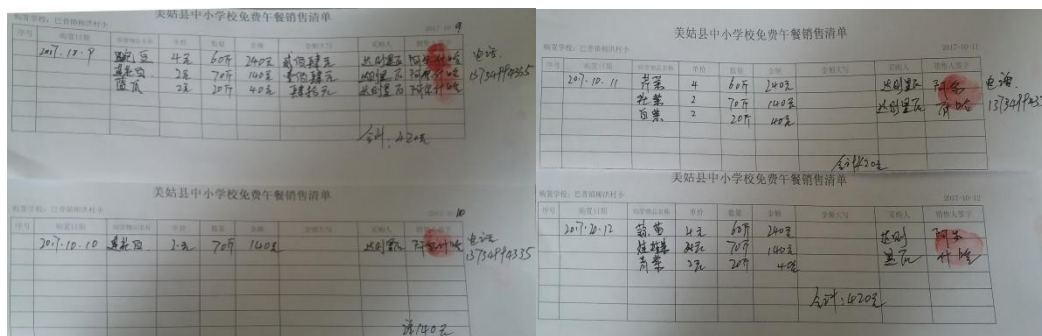 美姑县中小学校免费午餐销售清单
购置学校：巴普镇柳洪村小 2017-10-9
序号 购置日期 购置物品名称 单价 数量 金额 金额大写 采购人 销售人签字
2017.10.9 豌豆 4元 60斤 240元 贰佰肆元 达则里瓦 电话
2元 70斤 140元 壹佰肆元 达则里瓦 13734994335
2元 20斤 40元 肆拾元 达则里瓦
合计：420元
美姑县中小学校免费午餐销售清单
购置学校：巴普镇柳洪村小 10
序号 购置日期 购置物品名称 单价 数量 金额 金额大写 采购人 销售人签字
2017.10.10 2元 70斤 140元 达则里瓦 电话
13734994335
140元
美姑县中小学校免费午餐销售清单
购置学校：巴普镇柳洪村小 2017-10-11
序号 购置日期 购置物品名称 单价 数量 金额 金额大写 采购人 销售人签字
2017.10.11 芹菜 4 60斤 240元 达则里瓦 电话
2 70斤 140元 达则里瓦
白菜 2 20斤 40元
合计420元
美姑县中小学校免费午餐销售清单
购置学校：巴普镇柳洪村小 2017-10-12
序号 购置日期 购置物品名称 单价 数量 金额 金额大写 采购人 销售人签字
2017.10.12 莴笋 4元 60斤 240元 达则
70斤 140元 里瓦
青菜 2元 20斤 40元
合计：420元